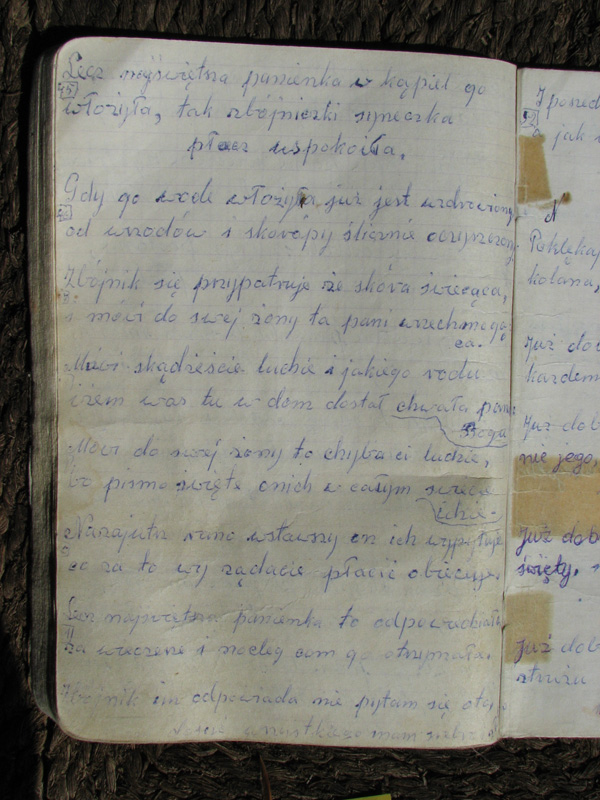 Lecz najświętsza panienka w kąpiel go
włożyła, tak zbójnicki syneczka
płacz uspokoiła.
Gdy go wode włożyła już jest uzdrowiony
od wrodów i skorópy ślicznie oczyszczony
Zbójnik się przypatruje że skóra świecąca,
i mówi do swej żony ta pani wrechmogą
ca.
Mówi skądzieście ludzie i jakiego rodu
iżem was tu w dom dostał chwała panu
Bogu
Mówi do swej żony to chyba ci ludzie,
bo pismo święte onich w całym świecie
idzie.
Nazajutrz rano wstawszy on ich wypytuje
co za to wy rządacie płacić obiecuje.
Lecz najświętsza panienka to odpowiedziała
za wieczerze i nocleg com go otrzymała.
Zbójnik im odpowiada nie pytam się oto,
mam
I posed
a jak
N
Poklękaj
kolana,
Już dob
każdem
Już dob
nie jego,
Już dob
święty.
Już dob
stróżu